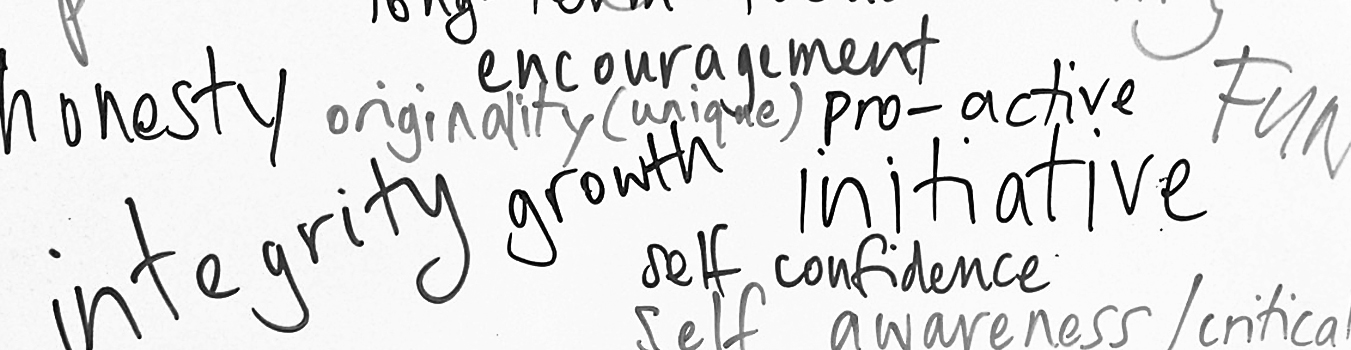 encouragement
honesty originality (unique) pro-active FUN
integrity growth initiative
self confidence
self awareness/critical